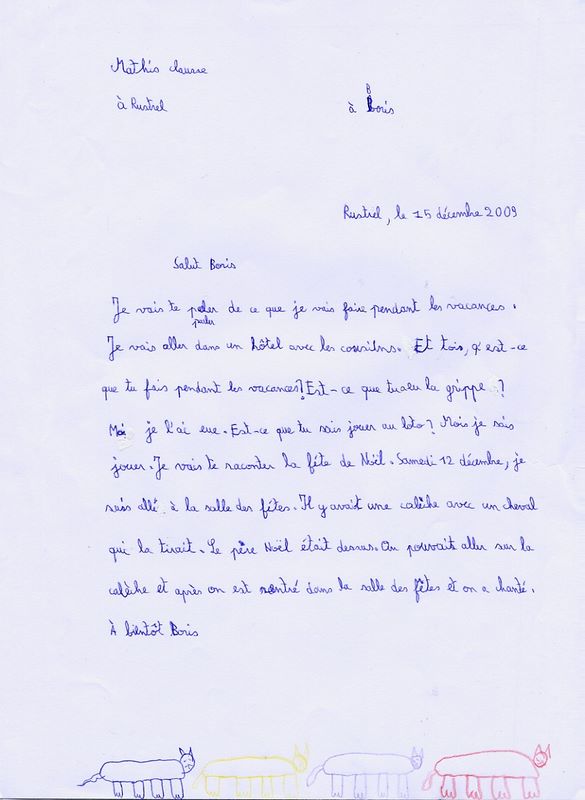 Mathis clausse
à Rustrel
B
à Boris
Rustrel, le 15 décembre 2009
Salut Boris
Je vais te peler de ce que je vais faire pendant les vacances.
parler
Je vais aller dans un hôtel avec les cousilns. Et tois, q'est-ce
que tu fais pendant les vacances? Est-ce que tuaeu la grippe ?
Moi je l'ai eue. Est-ce que tu sais jouer au loto? Mois je sais
jouer. Je vais te raconter la fête de Noël. Samedi 12 décembre, je
suis allé à la salle des fêtes. Il y avait une calèche avec un cheval
qui la tirait. Le père Noël était dessus. On pouvait aller sur la
calèche et après on est rentré dans la salle des fêtes et on a chanté.
À bientôt Boris